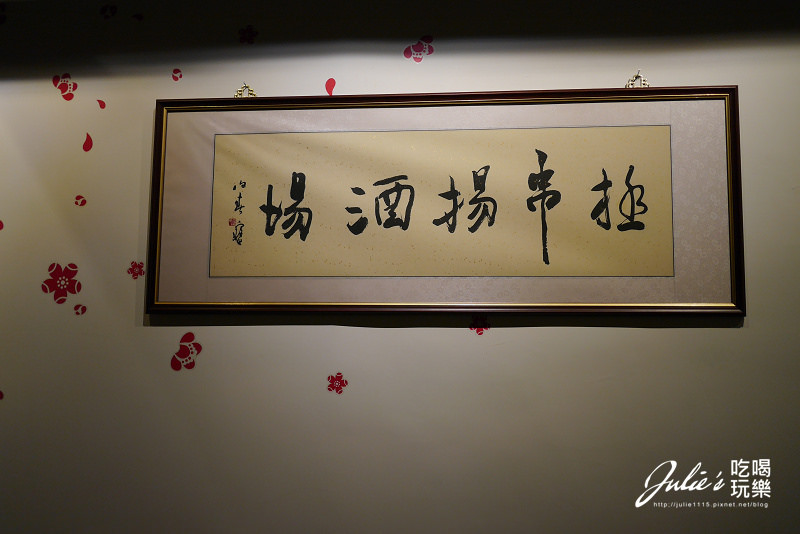 極串揚酒場
Julie's 吃喝
玩樂
http://julie1115.pixnet.net/blog